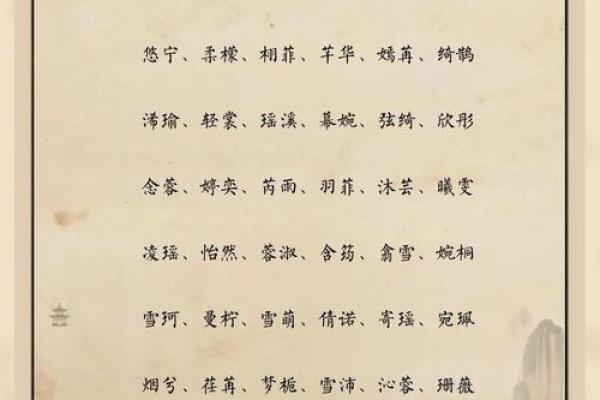 悠宁、柔檬、栩菲、芊华、嫣苒、绮鹊
浠瑜、轻裳、瑶溪、幕婉、弦绮、欣彤
念蓉、婷奕、芮雨、羽菲、沐芸、曦雯
凌瑶、怡然、蓉淑、含筠、翕雪、婉桐
雪珂、曼柠、雪萌、倩诺、寄瑶、宛珮
烟兮、荏苒、梦栀、雪沛、沁蓉、珊薇